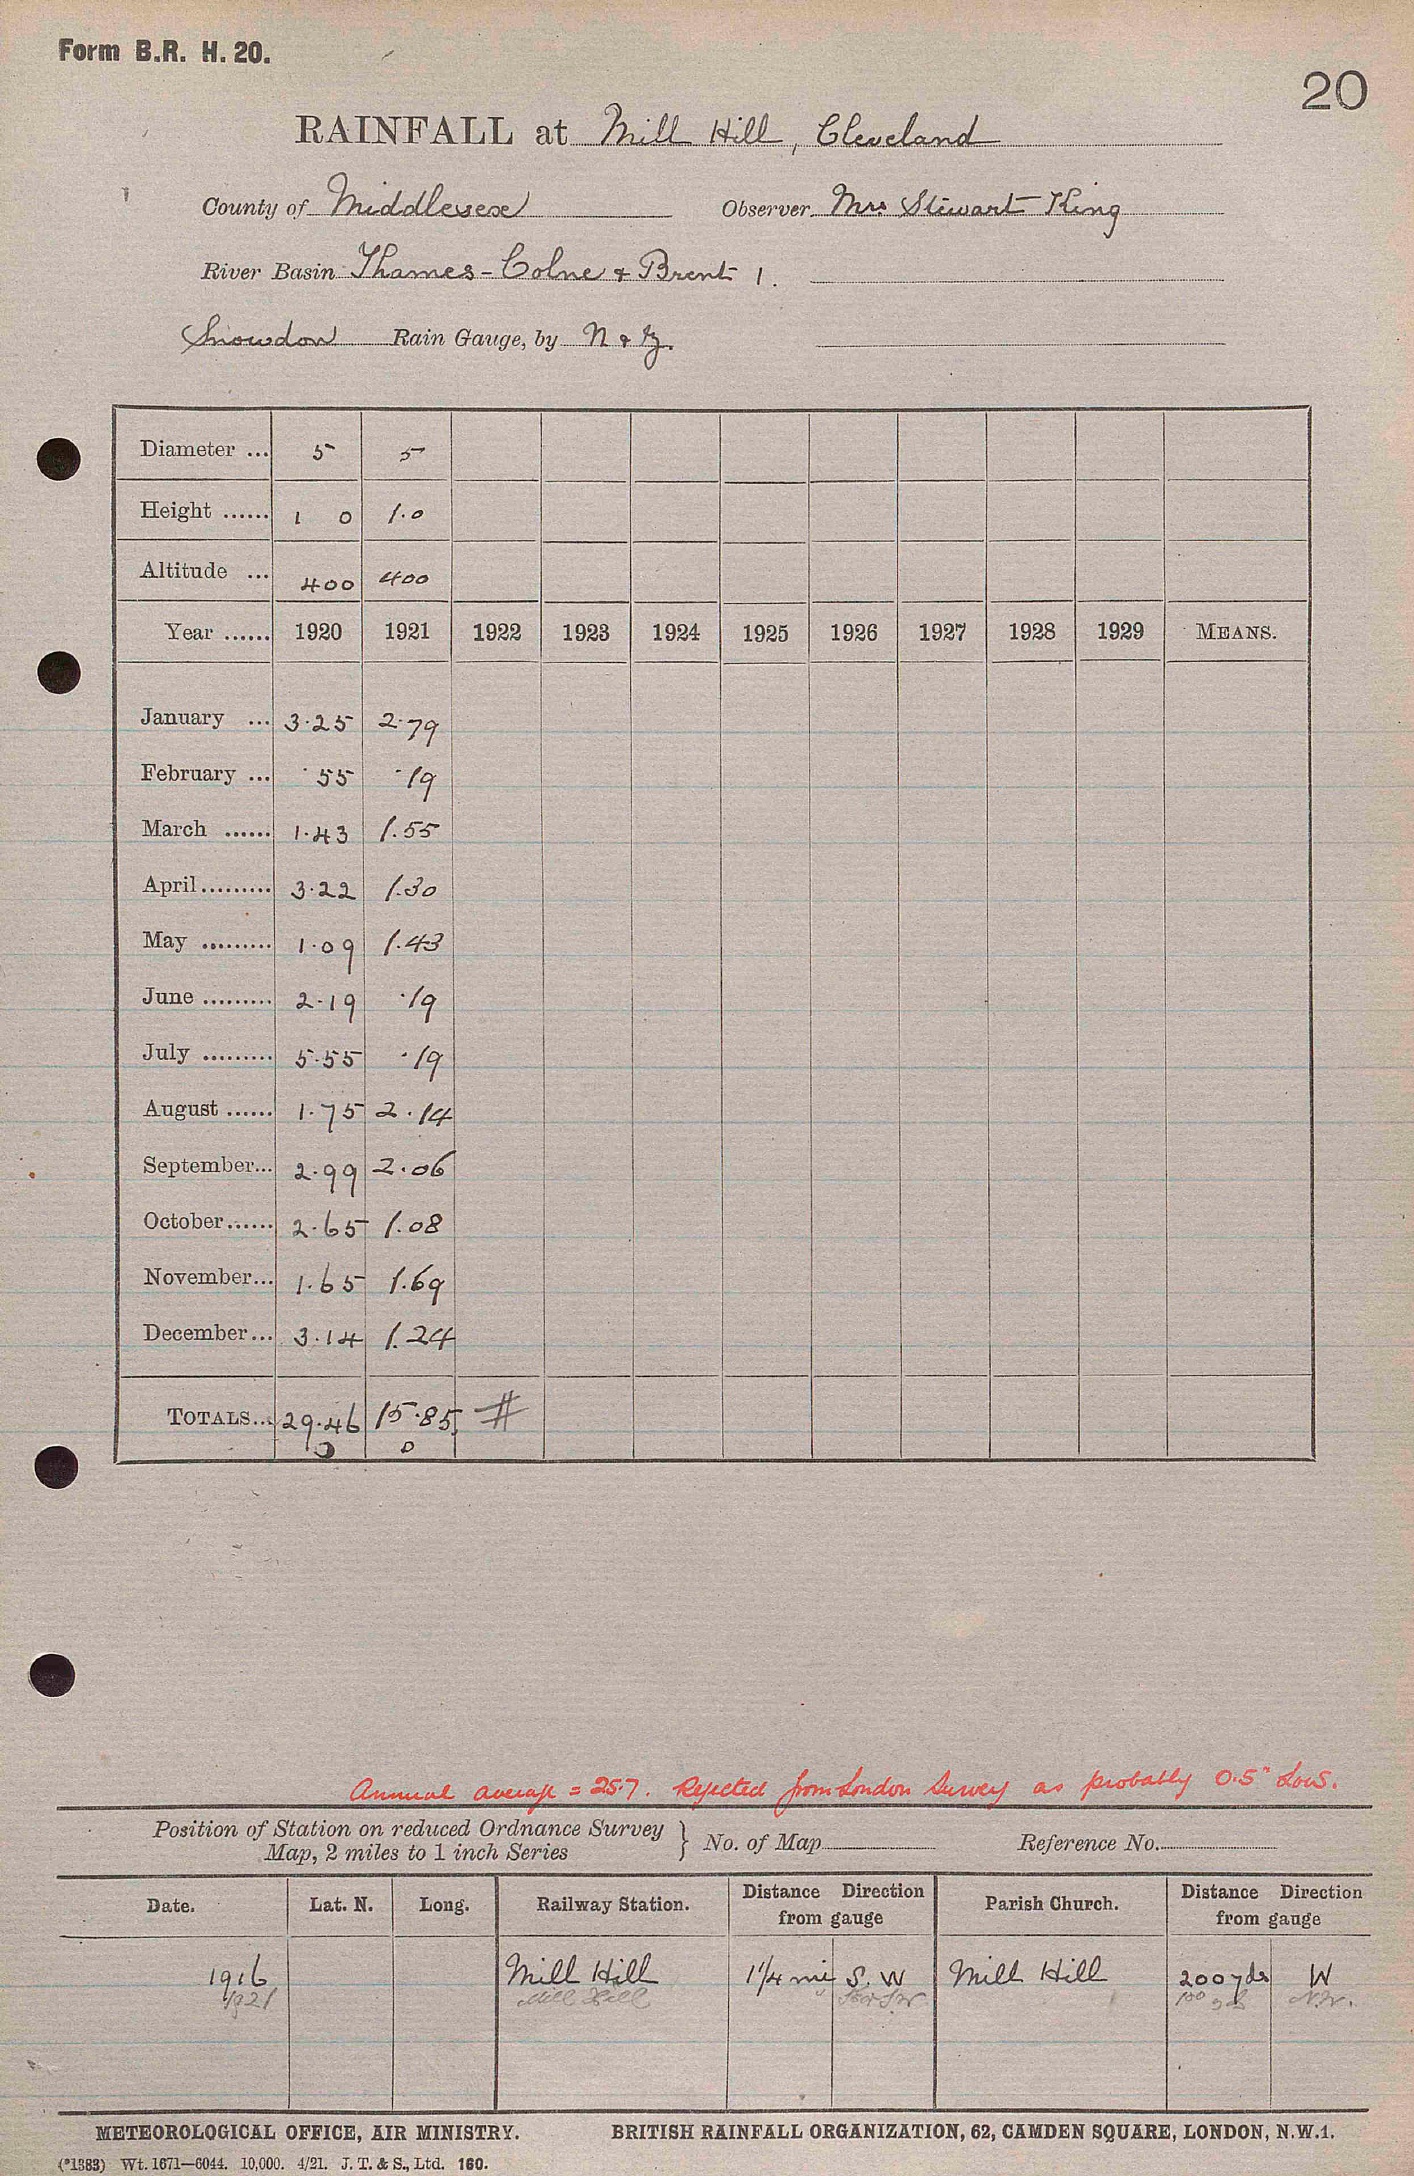 Form B.R. H. 20.
20
RAINFALL at Mill Hill, Cleveland
County of Middlesex Observer Mrs Stewart King
River Basin Thames - Colne & Brent 1.
Snowdon Rain Gauge, by N & Z.
Diameter ... 5 5
Height ...... 1 0 1.0
Altitude ... 400 400
Year ...... 1920 1921 1922 1923 1924 1925 1926 1927 1928 1929 MEANS.
January ... 3.25 2.79
February ... .55 .19
March ...... 1.43 1.55
April ......... 3.22 1.30
May ......... 1.09 1.43
June ......... 2.19 .19
July ......... 5.55 .19
August ...... 1.75 2.14
September... 2.99 2.06
October ...... 2.65 1.08
November... 1.65 1.69
December... 3.14 1.24
TOTALS... 29.46 15.85 #
Annual average = 25.7. Rejected from London Survey as probably 0.5" low.
Position of Station on reduced Ordnance Survey
Map, 2 miles to 1 inch Series } No. of Map Reference No.
Date. Lat. N. Long. Railway Station. Distance Direction from gauge Parish Church. Distance Direction from gauge
1916 Mill Hill 1 1/4 mi S. W Mill Hill 200 yds W
1921 Mill Hill 100 yds N.W.
METEOROLOGICAL OFFICE, AIR MINISTRY. BRITISH RAINFALL ORGANIZATION, 62, CAMDEN SQUARE, LONDON, N.W.1.
(*1383) Wt. 1671—6044. 10,000. 4/21. J. T. & S., Ltd. 160.